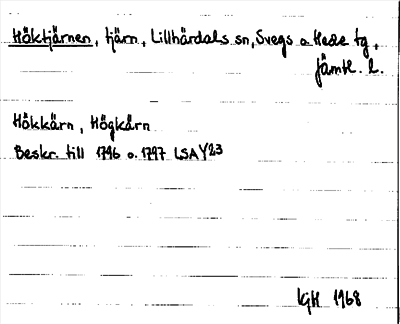 Höktjärnen, tjärn, Lillhärdals sn, Svegs o Hede tg,
Jämtl. l.
Hökkärn, Högkärn
Beskr. till 1796 o. 1797 LSA Y23
KGH 1968